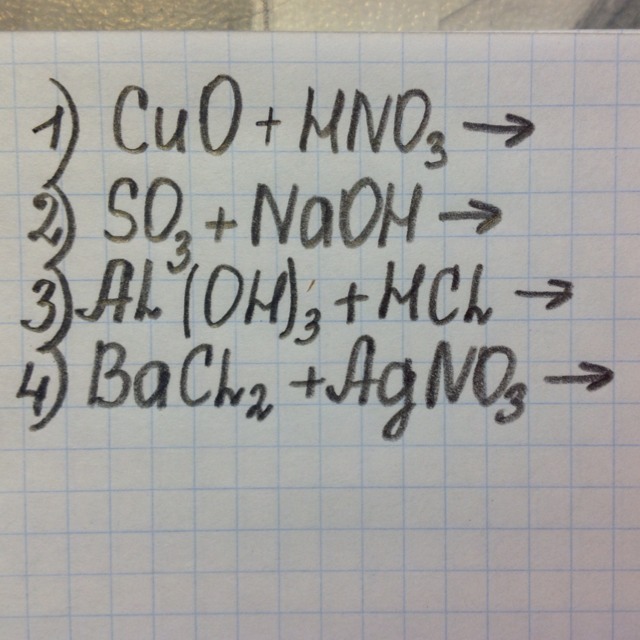 1) CuO + HNO₃ →
2) SO₃ + NaOH →
3) Al(OH)₃ + HCl →
4) BaCl₂ + AgNO₃ →